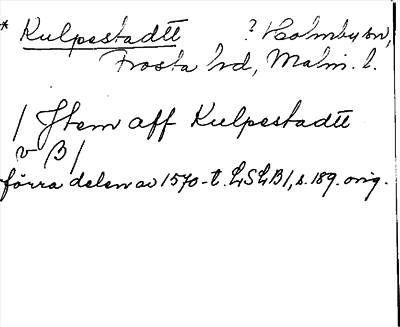 * Kulpestadtt ? Holmby sn,
Frosta hd, Malm. l.
/ Jtem aff Kulpestadtt
v β /
förra delen av 1570-t. LSLB 1, s. 189. orig.